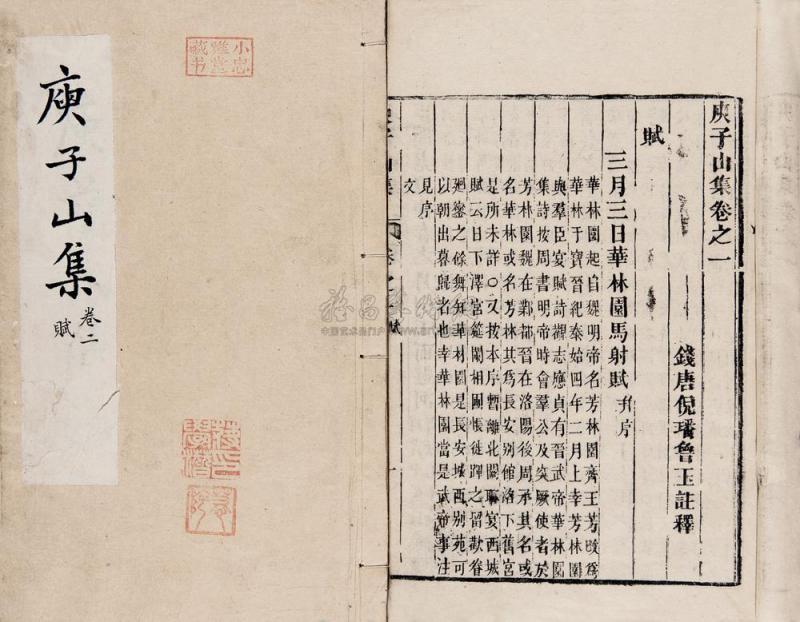 庾子山集
卷二
賦
小忠
雅堂
藏书
庾子山集卷之一
錢唐倪璠魯玉註釋
賦
三月三日華林園馬射賦 并序
華林園起自魏明帝名芳林園齊王芳改爲
華林于寶晉紀泰始四年二月上幸芳林園
與羣臣宴賦詩觀志應貞有晉武帝華林園
集詩按周書明帝時會羣公及突厥使者於
芳林園魏在鄴都晉在洛陽後周承其名或
名華林或名芳林其爲長安別館洛下舊宮
是所未詳○又按本序暫離北闕聊宴西城
賦云日下澤宮筵闌相圃悵徙蹕之留歡眷
廻鑾之餘舞知華林園是長安城西別苑可
以朝出暮歸者也幸華林園當是武帝事注
見序
文